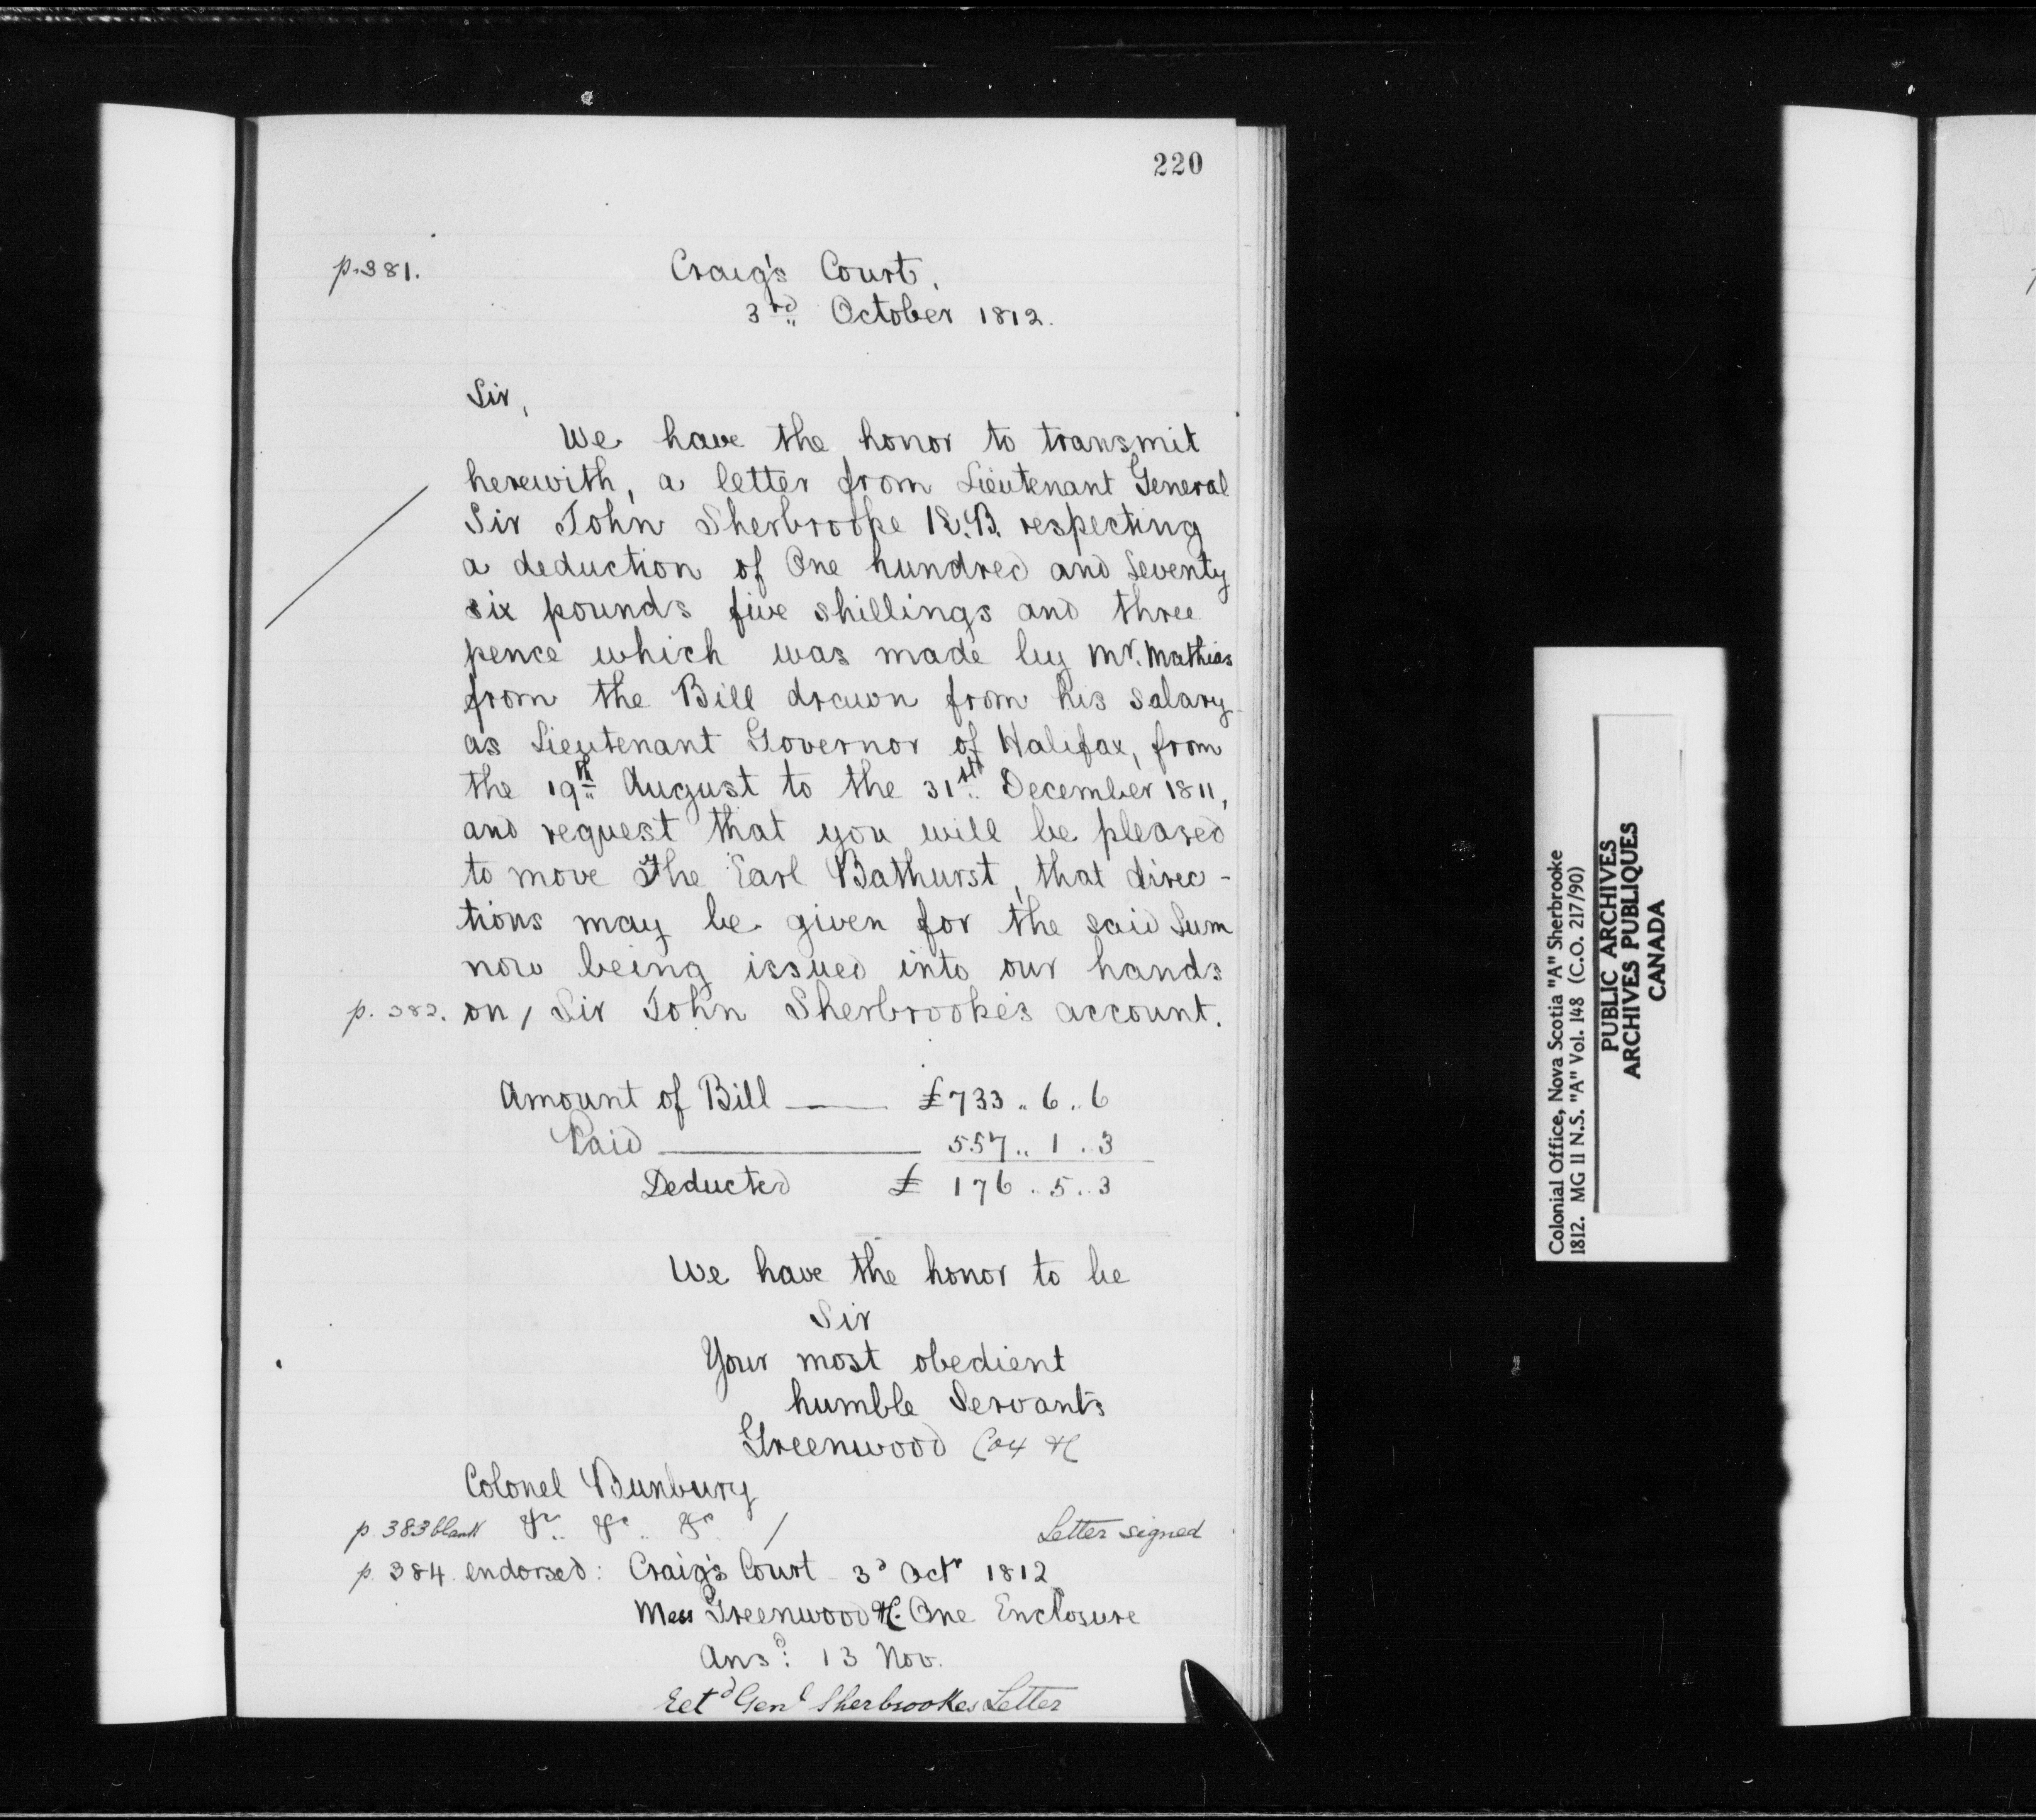 220
p. 381.
Craig's Court,
3rd October 1812.
Sir,
We have the honor to transmit
herewith, a letter from Lieutenant General
Sir John Sherbrooke K.B. respecting
a deduction of One hundred and Seventy
six pounds five shillings and three
pence which was made by Mr. Mathias
from the Bill drawn from his salary
as Lieutenant Governor of Halifax, from
the 19th August to the 31st December 1811,
and request that you will be pleased
to move The Earl Bathurst, that direc-
tions may be given for the said Sum
now being issued into our hands
p. 382. on / Sir John Sherbrooke's account.
Amount of Bill —— £733 .. 6 .. 6
Paid —— 557 .. 1 .. 3
Deducted £ 176 .. 5 .. 3
We have the honor to be
Sir
Your most obedient
humble Servants
Greenwood Cox &c
Colonel Bunbury
p 383 blank &c .. &c .. &c / Letter signed
p. 384. endorsed: Craig's Court - 3d Octr 1812
Mess Greenwood &c. One Enclosure
Ansd: 13 Nov.
Retd Genl Sherbrookes Letter
Colonial Office, Nova Scotia "A" Sherbrooke
1812. MG 11 N.S. "A" Vol. 148 (C.O. 217/90)
PUBLIC ARCHIVES
ARCHIVES PUBLIQUES
CANADA